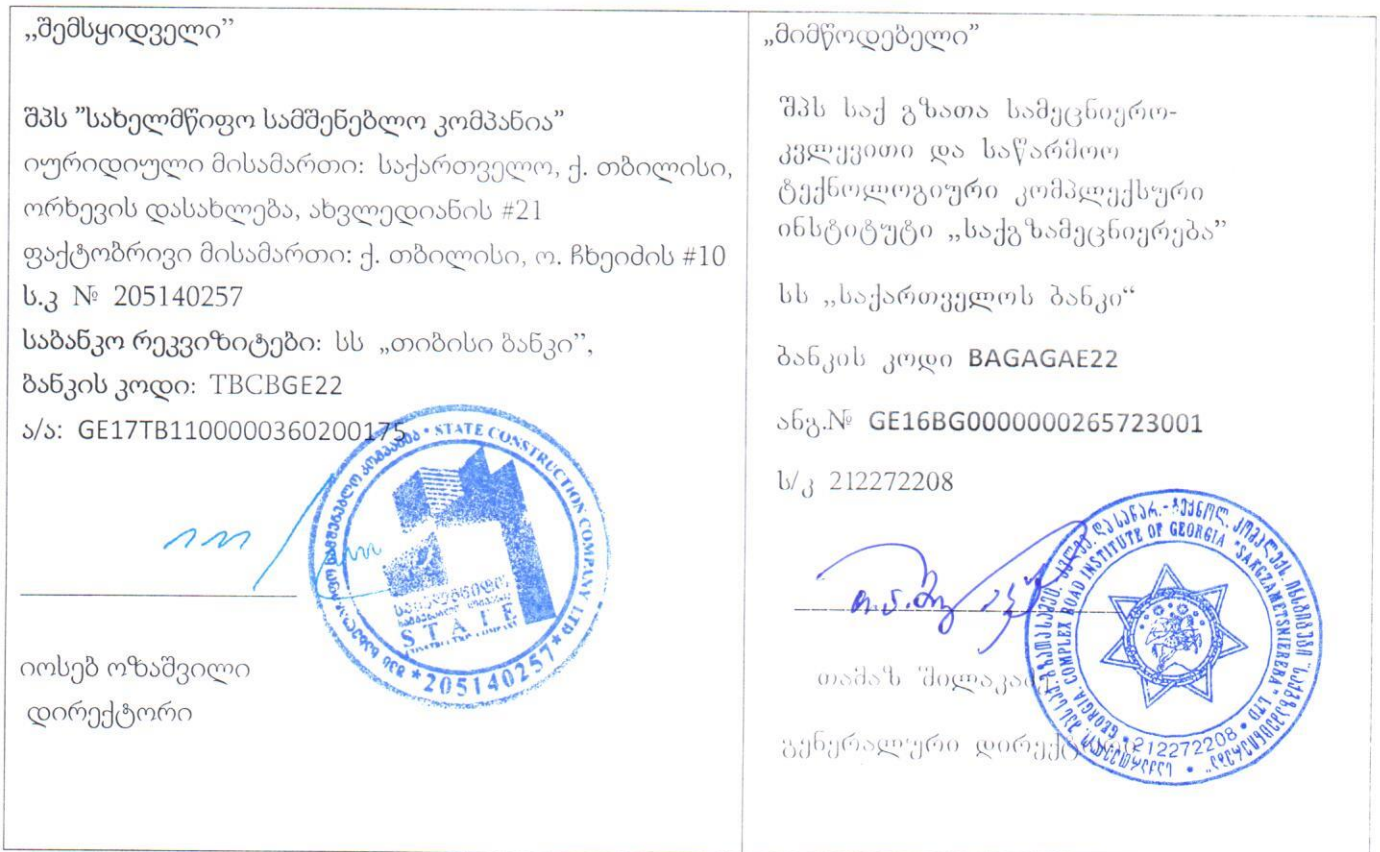 „შემსყიდველი”
შპს ”სახელმწიფო სამშენებლო კომპანია”
იურიდიული მისამართი: საქართველო, ქ. თბილისი,
ორხევის დასახლება, ახვლედიანის #21
ფაქტობრივი მისამართი: ქ. თბილისი, ო. ჩხეიძის #10
ს.კ № 205140257
საბანკო რეკვიზიტები: სს „თიბისი ბანკი”,
ბანკის კოდი: TBCBGE22
ა/ა: GE17TB1100000360200175
STATE CONSTRUCTION COMPANY LTD
STATE
*205140257*
იოსებ ოზაშვილი
დირექტორი
„მიმწოდებელი”
შპს საქ გზათა სამეცნიერო-
კვლევითი და საწარმოო
ტექნოლოგიური კომპლექსური
ინსტიტუტი „საქგზამეცნიერება”
სს „საქართველოს ბანკი“
ბანკის კოდი BAGAGAE22
ანგ.№ GE16BG0000000265723001
ს/კ 212272208
GEORGIA. COMPLEX ROAD INSTITUTE OF GEORGIA "SAKGZAMETSNIEREBA" LTD
212272208
თამაზ
გენერალური